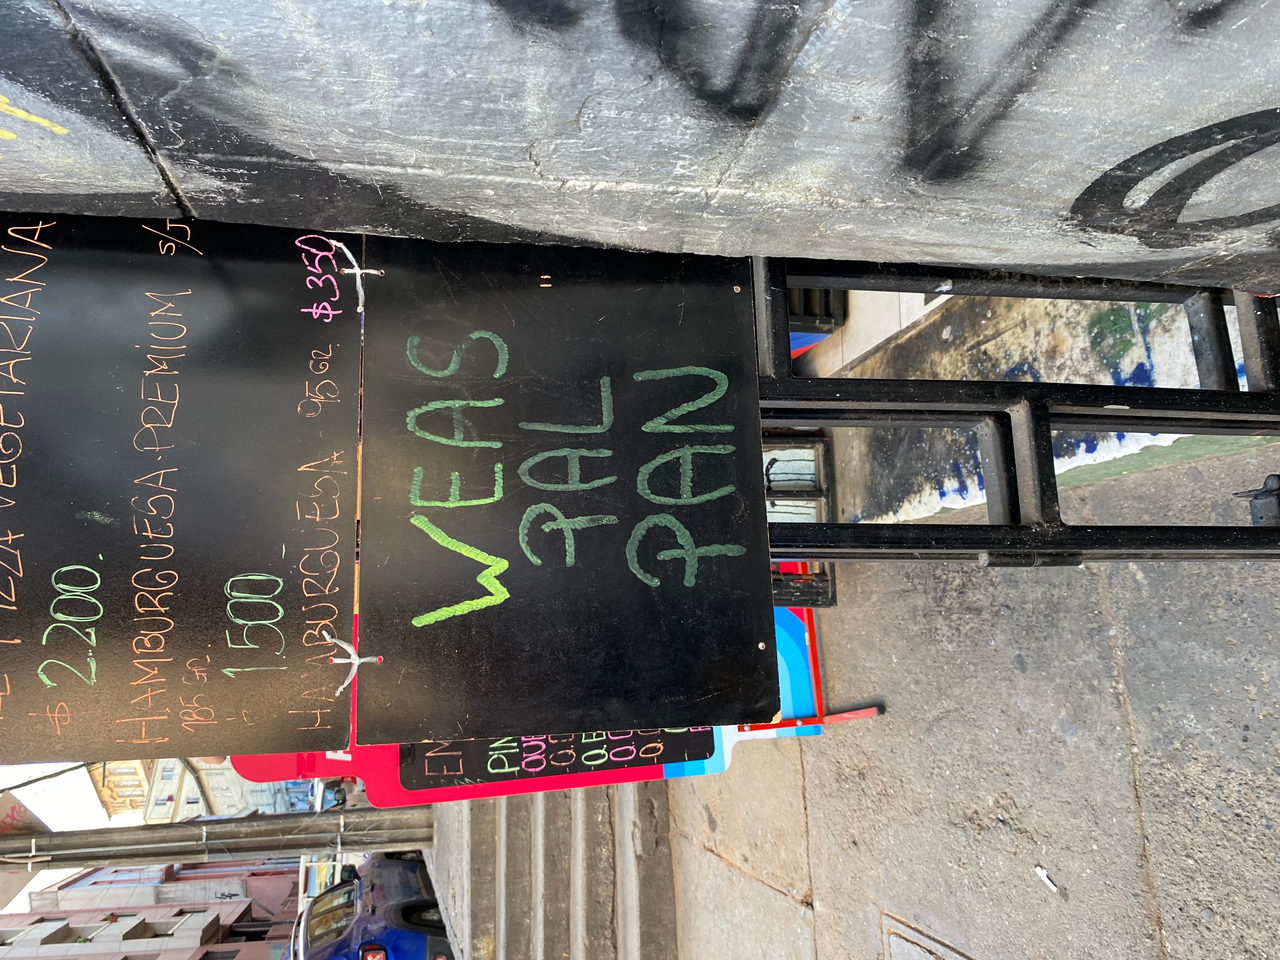 PIZZA VEGETARIANA
$ 2.200.
HAMBURGUESA PREMIUM S/J
185 gr.
1.500.-
HAMBURGUESA - 95 GR. $350
WEAS
PAL
PAN
EM
PIN
QUE